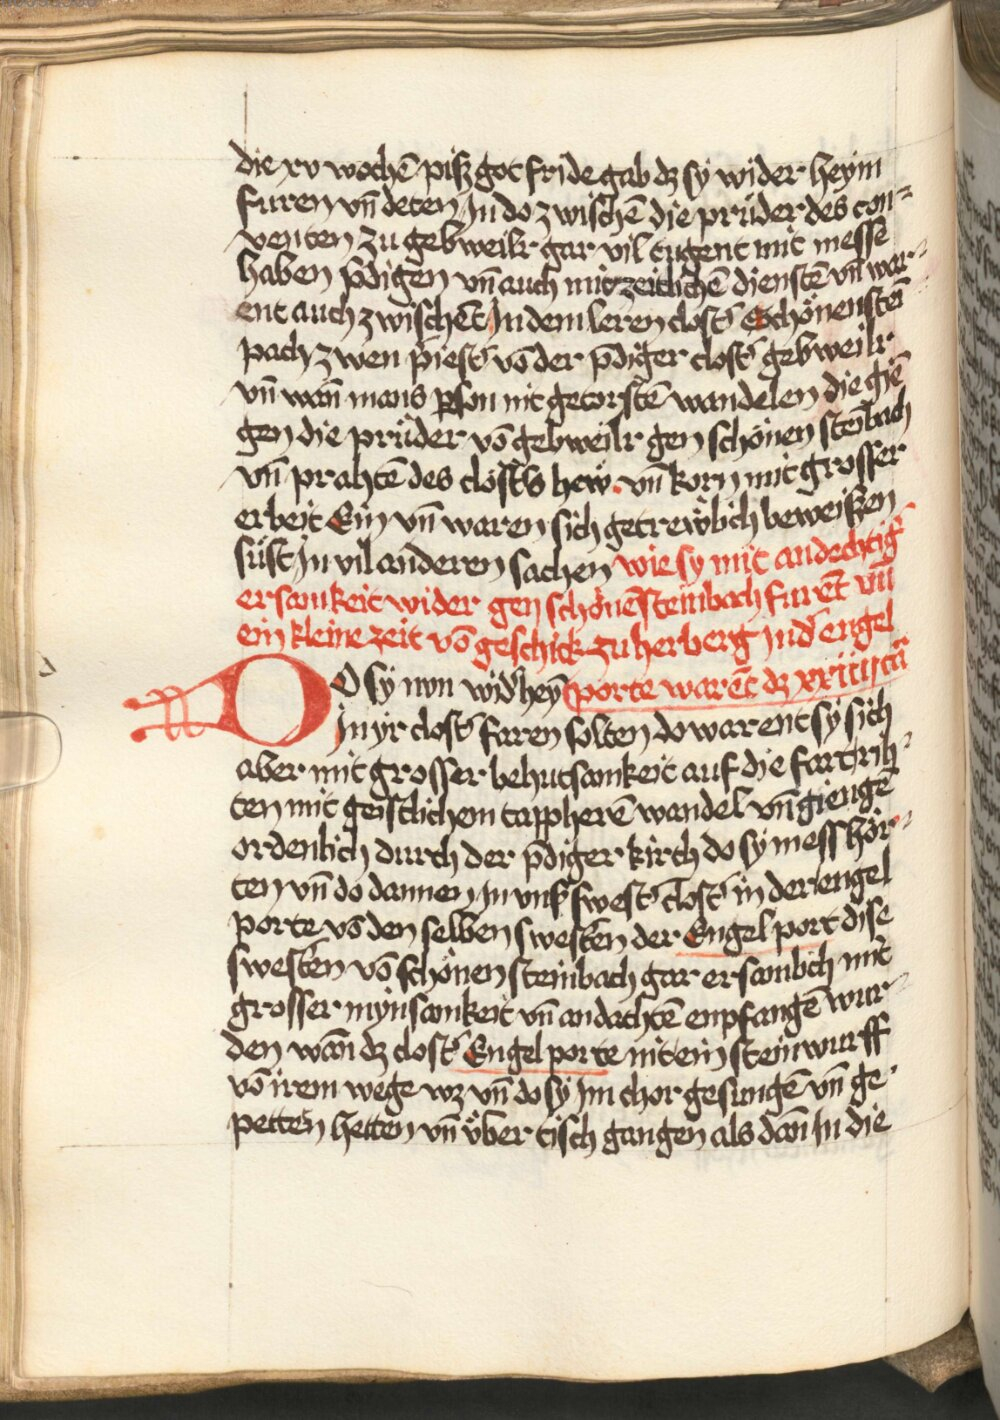 die xv wochē pisz got fride gab dz sy wider heym
furen vn̄ deten Jn do zwischē die prüder des con⸗
venten zu gebweilr gar vil tugent mit messe
haben p̄digen vn̄ auch mit zeitlichē dienstē vn̄ war⸗
ent auch zwischēt Jn dem leren clost' Schönenstei
pach zwen p̄iest' vō der p̄diger clost' gebweilr
vn̄ wan̄ mans p̱son nit getorstē wandelen die giē
gen die prüder vō gebweilr gen schönen steībach
vn̄ prahtē des clost's hew . vn̄ korn mit grosser
erbeit Ein vn̄ waren sich getrewlich beweiszen
süst Jn vil anderen sachen wie sy mit andechtig'
ersamkeit wider gen schönēsteinbach furēt vn̄
ein kleine zeit vō geschick zu herberg Jn d' engel
DO sy nvn wid' heȳ porte warēt dz xxiiii ca
Jn yr clost' faren solten do warent sy sich
aber mit grosser behutsamkeit auf die fart rih⸗
ten mit geistlichem tappherē wandel vn̄ giengē
ordenlich durch der p̄diger kirch do sy mess hör⸗
ten vn̄ do dannen Jn vns' swest' clost' in der engel
porte vō den selben swest'en der Engel port dise
swest'en vō schönen steinbach gar ersamlich mit
grosser mynsamkeit vn̄ andachtē enpfangē wur⸗
den wan̄ dz clost' Engel porte nit ein steinwurff
vō irem wege wz vn̄ do sy Jm chor gesungē vn̄ ge⸗
petten hetten vn̄ v̈ber tisch gangen als dan̄ Jn die